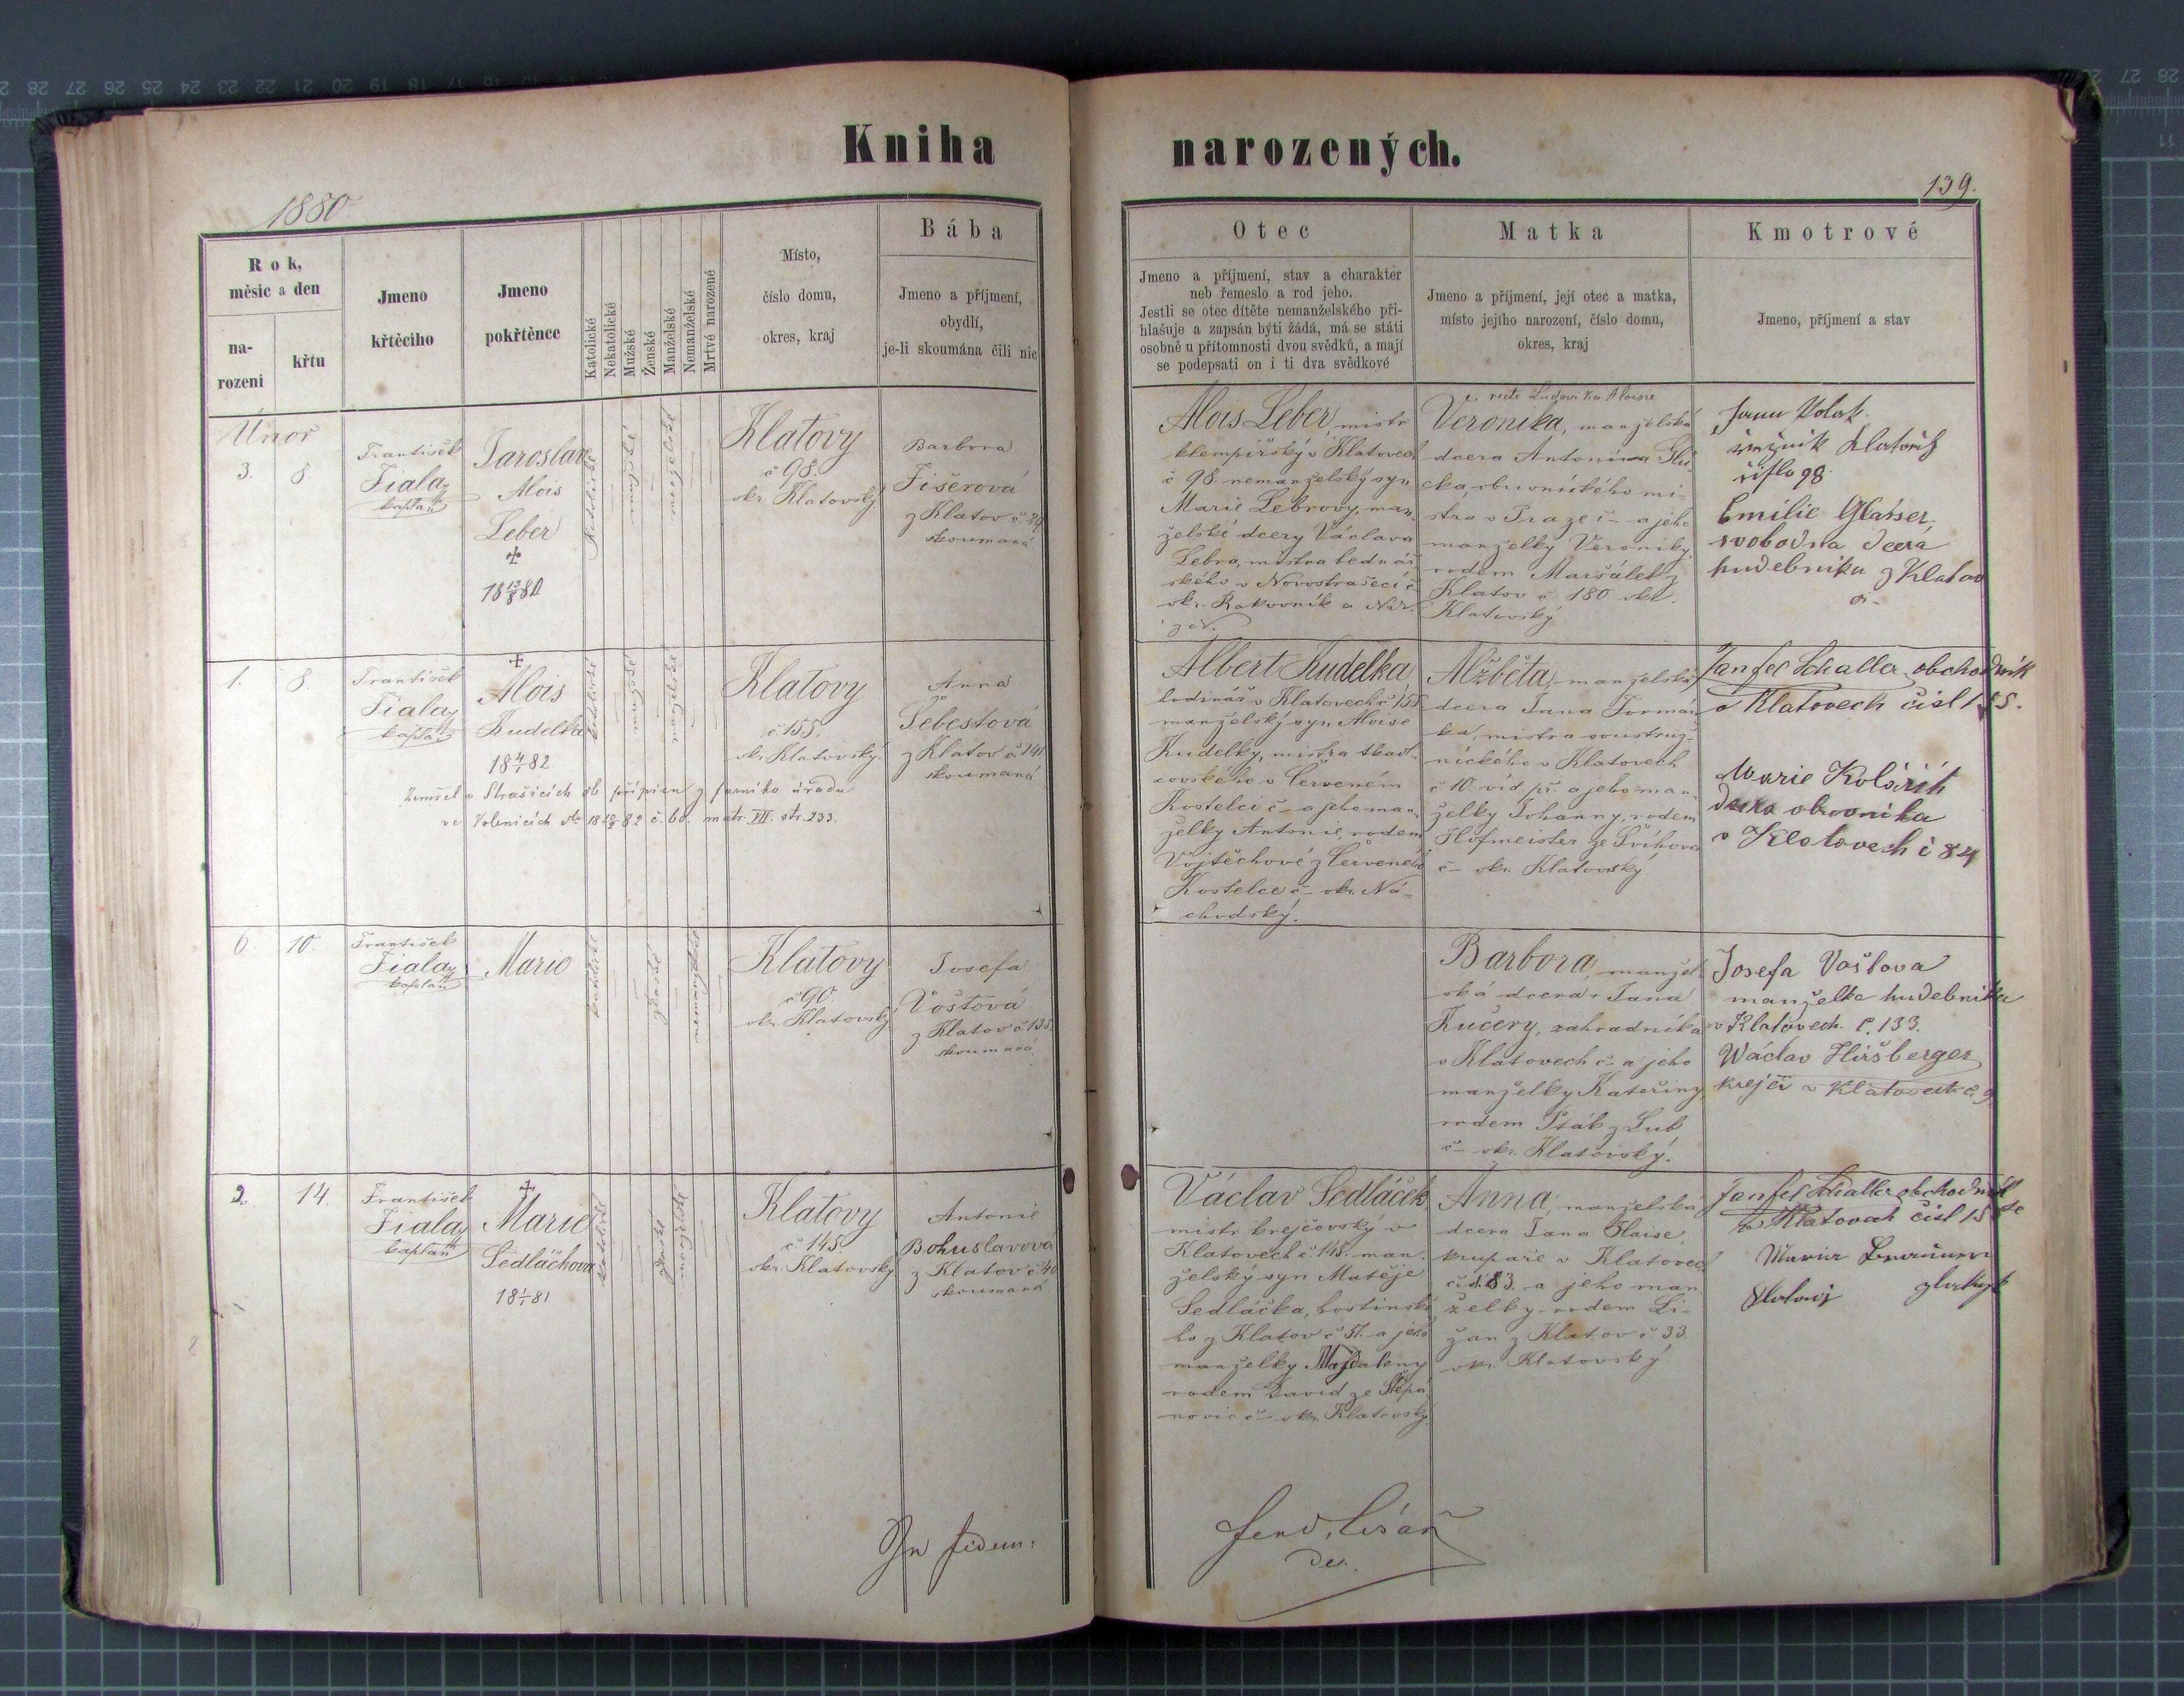 Kniha narozených.
1880
139.
Rok,
měsíc a den
na-
rození
křtu
Jmeno
křtěcího
Jmeno
pokřtěnce
Katolické
Nekatolické
Mužské
Ženské
Manželské
Nemanželské
Mrtvě narozené
Místo,
číslo domu,
okres, kraj
Bába
Jmeno a příjmení,
obydlí,
je-li skoumána čili nic
Otec
Jmeno a příjmení, stav a charakter
neb řemeslo a rod jeho.
Jestli se otec dítěte nemanželského při-
hlašuje a zapsán býti žádá, má se státi
osobně u přítomnosti dvou svědků, a mají
se podepsati on i ti dva svědkové
Matka
Jmeno a příjmení, její otec a matka,
místo jejího narození, číslo domu,
okres, kraj
Kmotrové
Jmeno, příjmení a stav
Únor
3.
8.
František
Fiala
kaplan
Jaroslav
Alois
Leber
katolické
mužské
manželské
Klatovy
č 98.
okr. Klatovský
Barbora
Fišerová
z Klatov č. 29
skoumaná
Alois Leber, mistr
klempířský v Klatovech
č 98. nemanželský syn
Marie Lebrovy, man-
želské dcery Václava
Lebra, mistra bednář
ského v Novostrašecí č
okr. Rakovník a
Veronika, manželská
dcera Antonína
mi-
stra v Praze č - a jeho
manželky Veroniky
rodem Maršálek z
Klatov č. 180 okr.
Klatovský
číslo 98.
Emilie Glaser,
svobodna dcera
hudebníka z Klatov
č -
1.
8.
František
Fiala
kaplan
Alois
Kudelka
18 4/1 82
Zemřel v Strašicích dle přípisu z farního úřadu
ve Volenicích
matr. VII. str. 233.
katolické
mužské
manželské
Klatovy
č 155.
okr. Klatovský
Anna
Šebestová
z Klatov č 141
skoumaná
Albert Kudelka,
hodinář v Klatovech č. 155
manželský syn Aloise
Kudelky, mistra tkadl-
covského v Červeném
Kostelci č - a jeho man-
želky Antonie, rodem
Vojtěchové z Červeného
Kostelce č - okr. Ná-
chodský.
Alžběta, manželská
dcera Jana Forman
ka, mistra soustruž-
nického v Klatovech
č 10 víd. př. a jeho man-
želky Johanny, rodem
Hofmeister ze Švihova
č - okr. Klatovský
Schaller obchodník
v Klatovech čísl 155.
Marie
v Klatovech č 84
6.
10.
František
Fiala
kaplan
Marie
katolické
ženské
nemanželské
Klatovy
č 90.
okr. Klatovský
Josefa
Voštová
z Klatov č. 133
skoumaná
Barbora, manžel-
ská dcera Jana
Kučery, zahradníka
v Klatovech č - a jeho
manželky Kateřiny
rodem Pták z Lub
č - okr. Klatovský.
Josefa Voštova
manželka hudebníka
v Klatovech. č. 133.
Wáclav Hiršberger
krejčí v Klatovech č. 9
2.
14.
František
Fiala
kaplan
Marie
Sedláčkova
18 1/1 81
katolické
ženské
manželské
Klatovy
č 148
okr. Klatovský
Antonie
Bohuslavová
z Klatov č 40
skoumaná
Václav Sedláček
mistr krejčovský v
Klatovech č. 148. man-
želský syn Matěje
Sedláčka, hostinské
ho z Klatov č 57. a jeho
manželky Majdaleny
rodem David ze Štěpa
novic č - okr. Klatovský.
Anna, manželská
dcera Jana Blaise,
krupaře v Klatovech
č. d. 83 a jeho man
želky rodem Li-
žan z Klatov č 33.
okr. Klatovský
Schaller obchodník
v Klatovech čísl 155
In fidem:
Ferd. Císař